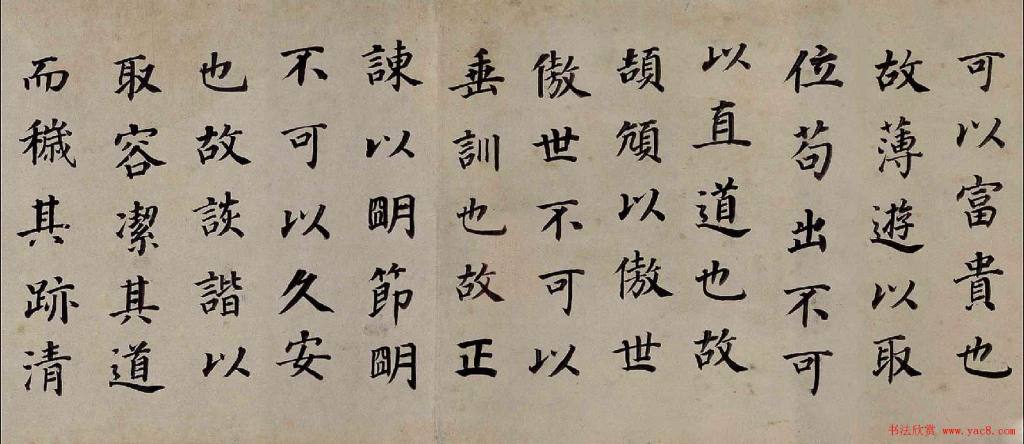 可以富貴也
故薄遊以取
位苟出不可
以直道也故
頡頏以傲世
傲世不可以
垂訓也故正
諫以朙節朙
不可以久安
也故談諧以
取容潔其道
而穢其跡清
书法欣赏 www.yac8.com